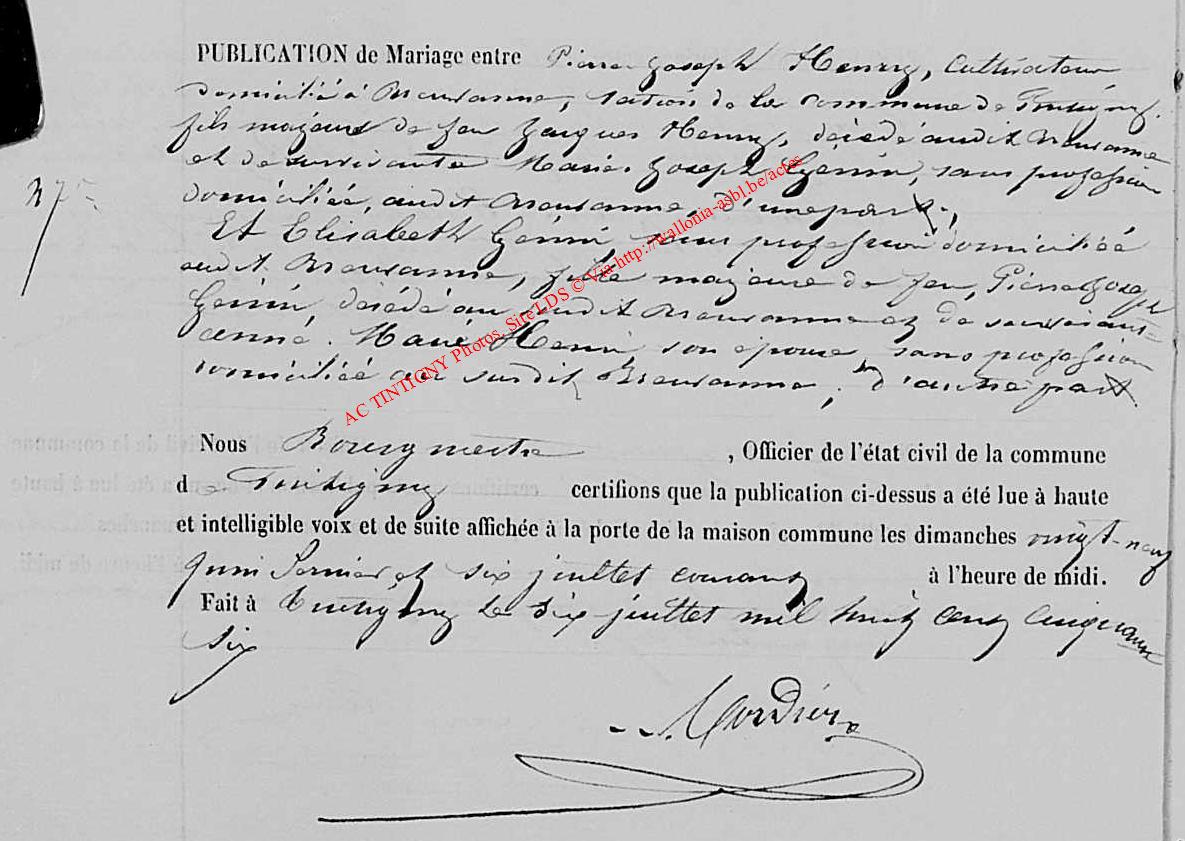 PUBLICATION de Mariage entre Pierre Joseph Henry, Cultivateur
domicilié à Breuvanne, section de la commune de Tintigny.
fils majeur de feu Jacques Henry, décédé audit Breuvanne
et de survivante Marie Joseph Gérin, sans profession
domiciliée, audit Breuvanne, d'une part,
Et Elisabeth Gérin sans profession domiciliée
audit Breuvanne, fille majeure de feu, Pierre Joseph
Gérin, décédé au susdit Breuvanne et de survivante
Marie Henri, son épouse, sans profession
domiciliée au susdit Breuvanne, d'autre part.
Nous Bourgmestre , Officier de l'état civil de la commune
de Tintigny certifions que la publication ci-dessus a été lue à haute
et intelligible voix et de suite affichée à la porte de la maison commune les dimanches vingt-neuf
Juin dernier et six juillet courant à l'heure de midi.
Fait à Tintigny le six juillet mil huit cent cinquante
six
AC TINTIGNY Photos. Site LDS © Via http://wallonia-asbl.be/actes